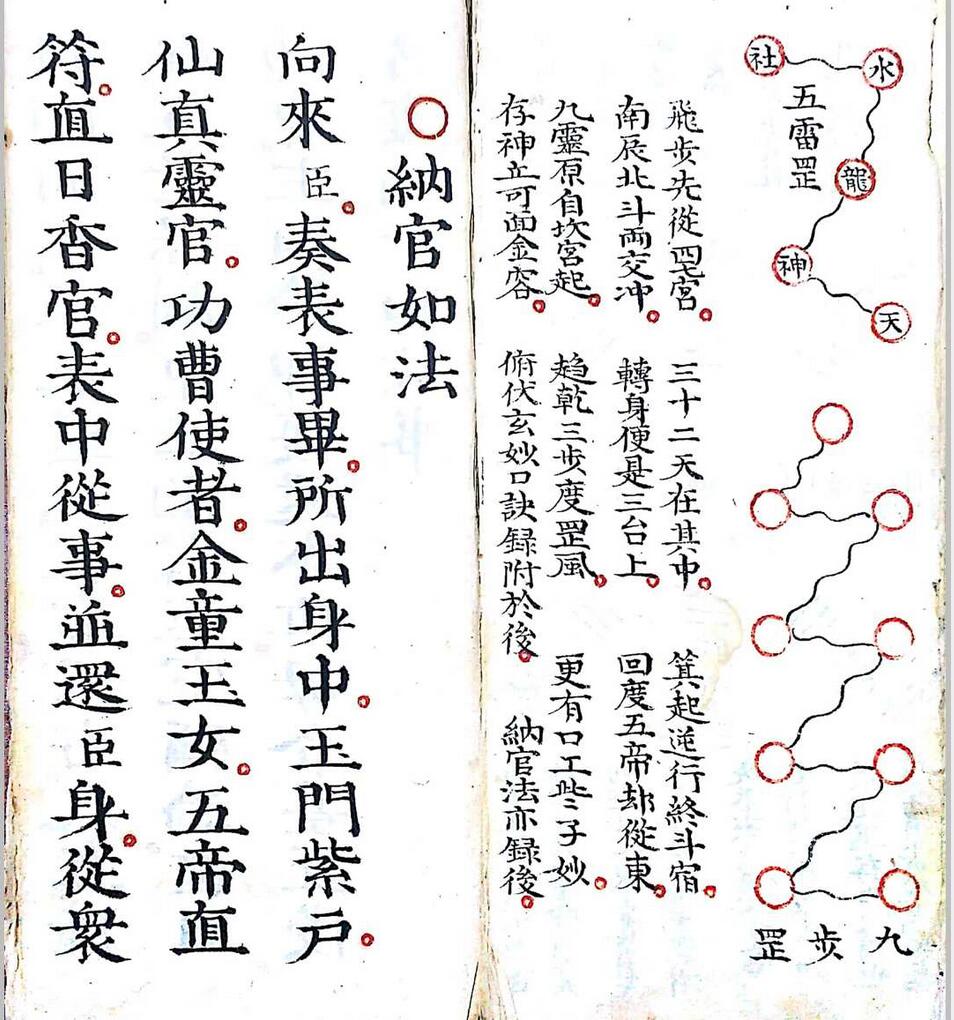 社水龍神天
五雷罡
九步罡
飛步先從四七宮 三十二天在其中 箕起逆行終斗宿
南辰北斗兩交冲 轉身便是三台上 回度五帝却從東
九靈原自坎宮起 趋乾三步度罡風 更有口工些子妙
存神立可面金容 俯伏玄妙口訣録附於後 納官法亦録後
○納官如法
向來臣奏表事畢所出身中玉門紫户
仙真靈官功曹使者金童玉女五帝直
符直日香官表中從事並還臣身從衆